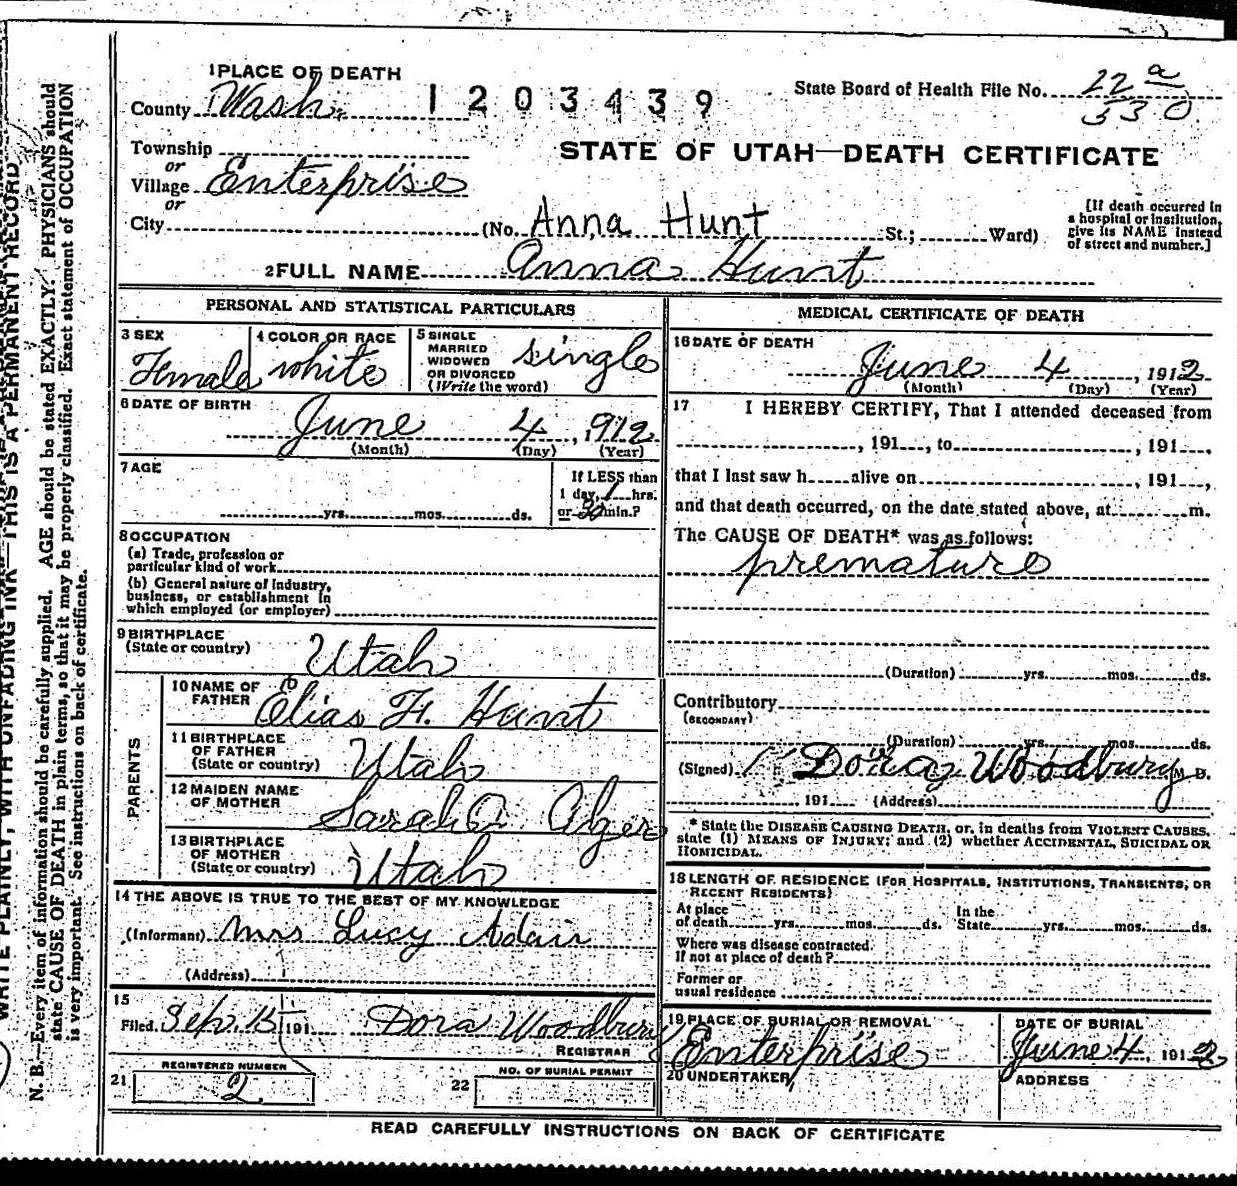 1 PLACE OF DEATH
County Wash.
1203439
State Board of Health File No. 22 a
530
Township
or
Village Enterprise
or
City
STATE OF UTAH—DEATH CERTIFICATE
(No. Anna Hunt St.; Ward)
[If death occurred in
a hospital or institution,
give its NAME instead
of street and number.]
2 FULL NAME Anna Hunt
PERSONAL AND STATISTICAL PARTICULARS
3 SEX
Female
4 COLOR OR RACE
white
5 SINGLE
MARRIED
WIDOWED
OR DIVORCED
(Write the word)
single
6 DATE OF BIRTH
June 4, 1912
(Month) (Day) (Year)
7 AGE
yrs. mos. ds.
If LESS than
1 day, 1 hrs.
or 30 min.?
8 OCCUPATION
(a) Trade, profession or
particular kind of work
(b) General nature of Industry,
business, or establishment in
which employed (or employer)
9 BIRTHPLACE
(State or country)
Utah
PARENTS
10 NAME OF
FATHER
Elias F. Hunt
11 BIRTHPLACE
OF FATHER
(State or country)
Utah
12 MAIDEN NAME
OF MOTHER
Sarah A. Alger
13 BIRTHPLACE
OF MOTHER
(State or country)
Utah
14 THE ABOVE IS TRUE TO THE BEST OF MY KNOWLEDGE
(Informant) Mrs Lucy Adair
(Address)
15
Filed Sep. 15 191 Dora Woodbury
REGISTRAR
REGISTERED NUMBER
21 2
NO. OF BURIAL PERMIT
22
MEDICAL CERTIFICATE OF DEATH
16 DATE OF DEATH
June 4, 1912
(Month) (Day) (Year)
17 I HEREBY CERTIFY, That I attended deceased from
, 191 , to , 191 .
that I last saw h alive on , 191 ,
and that death occurred, on the date stated above, at m.
The CAUSE OF DEATH* was as follows:
premature
(Duration) yrs. mos. ds.
Contributory
(SECONDARY)
(Duration) yrs. mos. ds.
(Signed) Dora Woodbury M. D.
, 191 (Address)
* State the DISEASE CAUSING DEATH, or, in deaths from VIOLENT CAUSES,
state (1) MEANS OF INJURY; and (2) whether ACCIDENTAL, SUICIDAL OR
HOMICIDAL.
18 LENGTH OF RESIDENCE (FOR HOSPITALS, INSTITUTIONS, TRANSIENTS, OR
RECENT RESIDENTS)
At place
of death yrs. mos. ds.
In the
State yrs. mos. ds.
Where was disease contracted.
If not at place of death?
Former or
usual residence
19 PLACE OF BURIAL OR REMOVAL
Enterprise
DATE OF BURIAL
June 4, 1912
20 UNDERTAKER
ADDRESS
READ CAREFULLY INSTRUCTIONS ON BACK OF CERTIFICATE
WRITE PLAINLY, WITH UNFADING INK—THIS IS A PERMANENT RECORD
N. B.—Every item of information should be carefully supplied. AGE should be stated EXACTLY. PHYSICIANS should
state CAUSE OF DEATH in plain terms, so that it may be properly classified. Exact statement of OCCUPATION
is very important. See instructions on back of certificate.